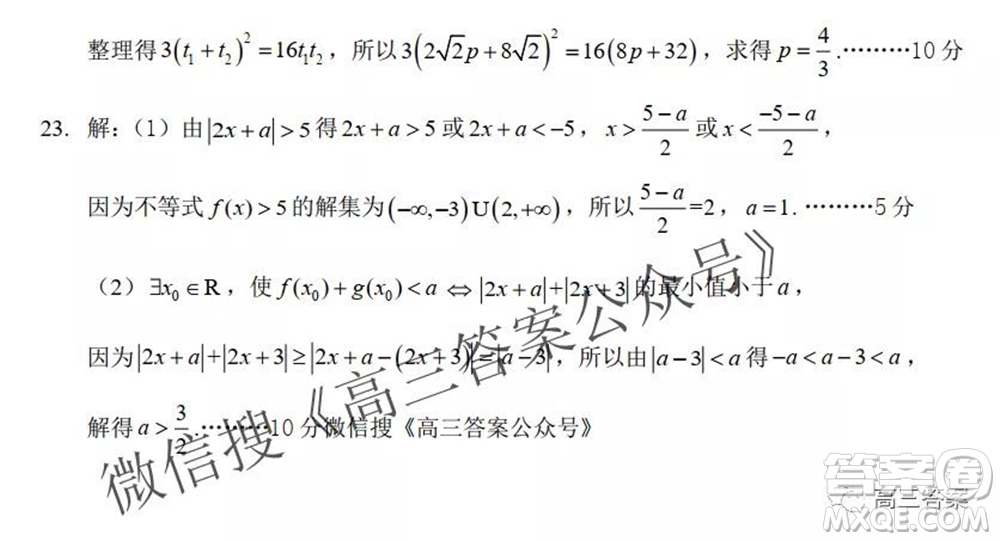 整理得3(t₁+t₂)²=16t₁t₂，所以3(2√2p+8√2)²=16(8p+32)，求得p=4/3.………10分
23. 解：(1) 由|2x+a|>5得2x+a>5或2x+a<-5，x>(5-a)/2或x<(-5-a)/2，
因为不等式f(x)>5的解集为(-∞,-3)U(2,+∞)，所以(5-a)/2=2，a=1.………5分
(2) ∃x₀∈R，使f(x₀)+g(x₀)<a⇔|2x+a|+|2x+3|的最小值小于a，
因为|2x+a|+|2x+3|≥|2x+a-(2x+3)|=|a-3|，所以由|a-3|<a得-a<a-3<a，
解得a>3/2.………10分微信搜《高三答案公众号》
微信搜《高三答案公众号》
答案圈
高三答案
MXQE.COM